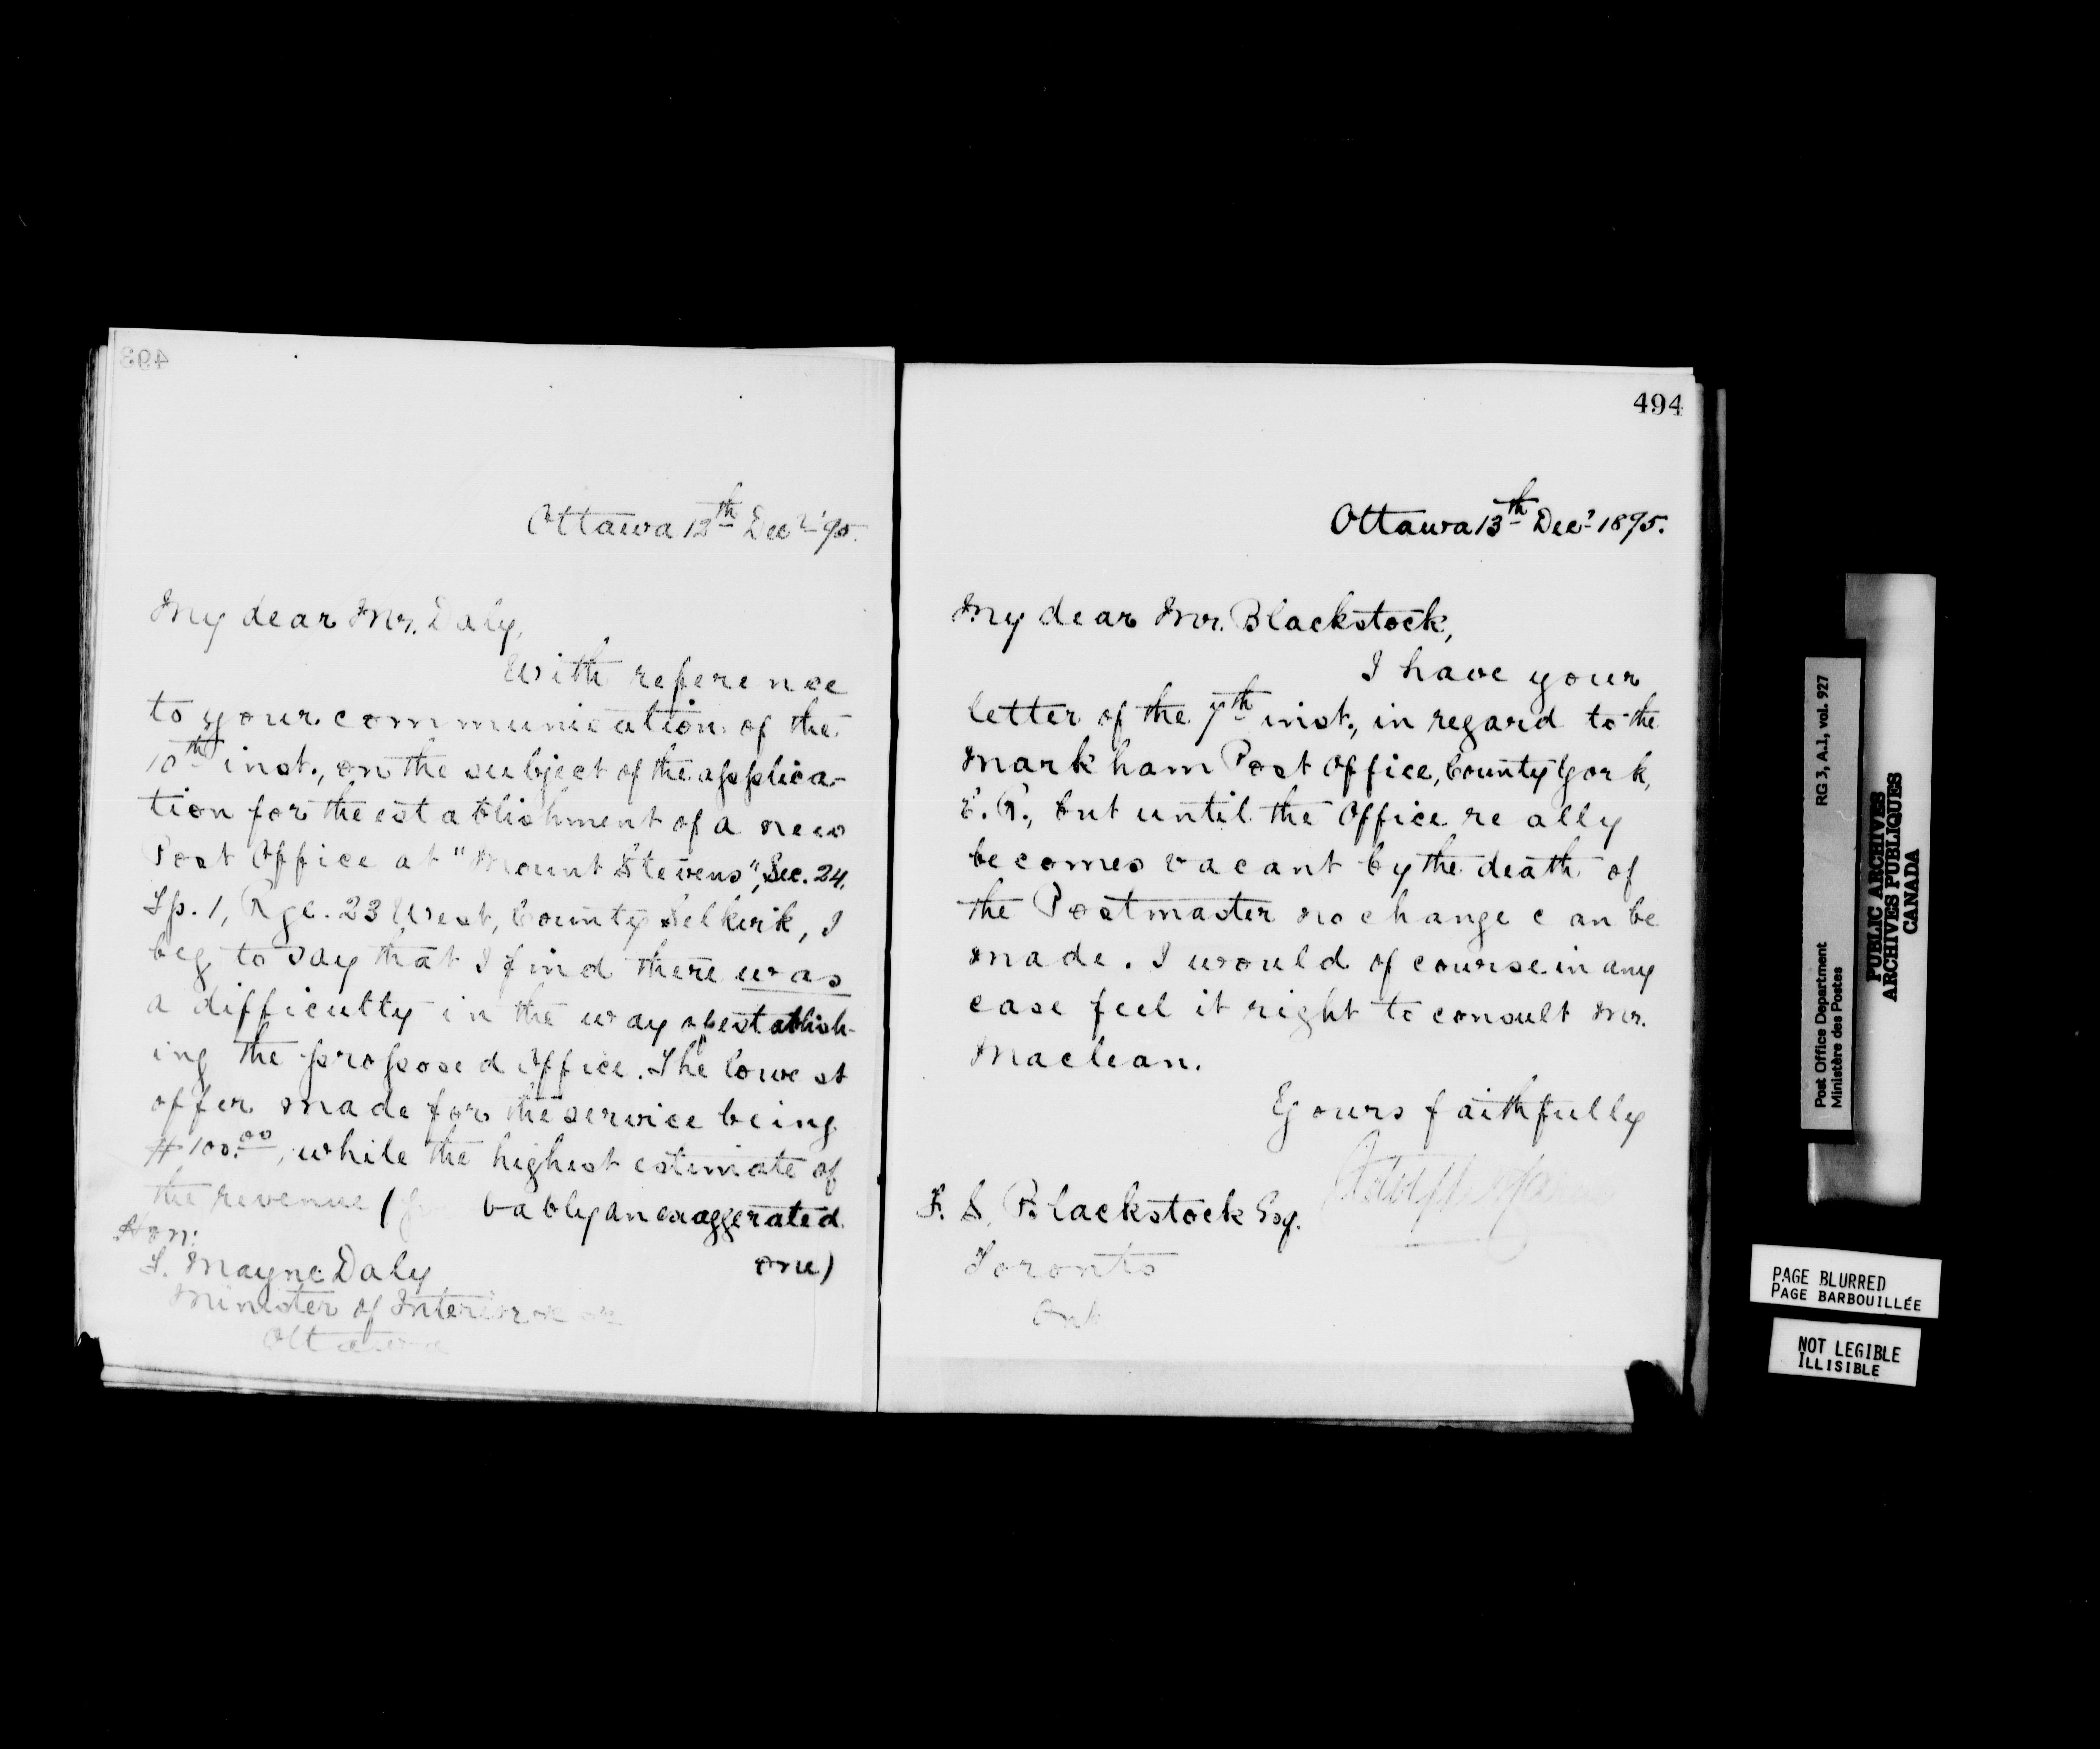 493
Ottawa 12th Decr '95.
My dear Mr. Daly,
With reference
to your communication of the
10th inst., on the subject of the applica-
tion for the establishment of a new
Post Office at "Mount Stevens", Sec. 24,
Tp. 1, Rge. 23 West, County Selkirk, I
beg to say that I find there was
a difficulty in the way of establish-
ing the proposed Office. The lowest
offer made for the service being
$100.00, while the highest estimate of
the revenue ( bably an exaggerated
one)
Hon:
T. Mayne Daly
Minister of Interior
Ottawa
494
Ottawa 13th Decr 1895.
My dear Mr. Blackstock,
I have your
letter of the 7th inst., in regard to the
Markham Post Office, County York,
E. R., but until the Office really
becomes vacant by the death of
the Postmaster no change can be
made. I would of course in any
case feel it right to consult Mr.
Maclean.
Yours faithfully
F. S. Blackstock Esq.
Toronto
Ont
Post Office Department
Ministère des Postes
RG 3, A.1, vol. 927
PUBLIC ARCHIVES
ARCHIVES PUBLIQUES
CANADA
PAGE BLURRED
PAGE BARBOUILLÉE
NOT LEGIBLE
ILLISIBLE